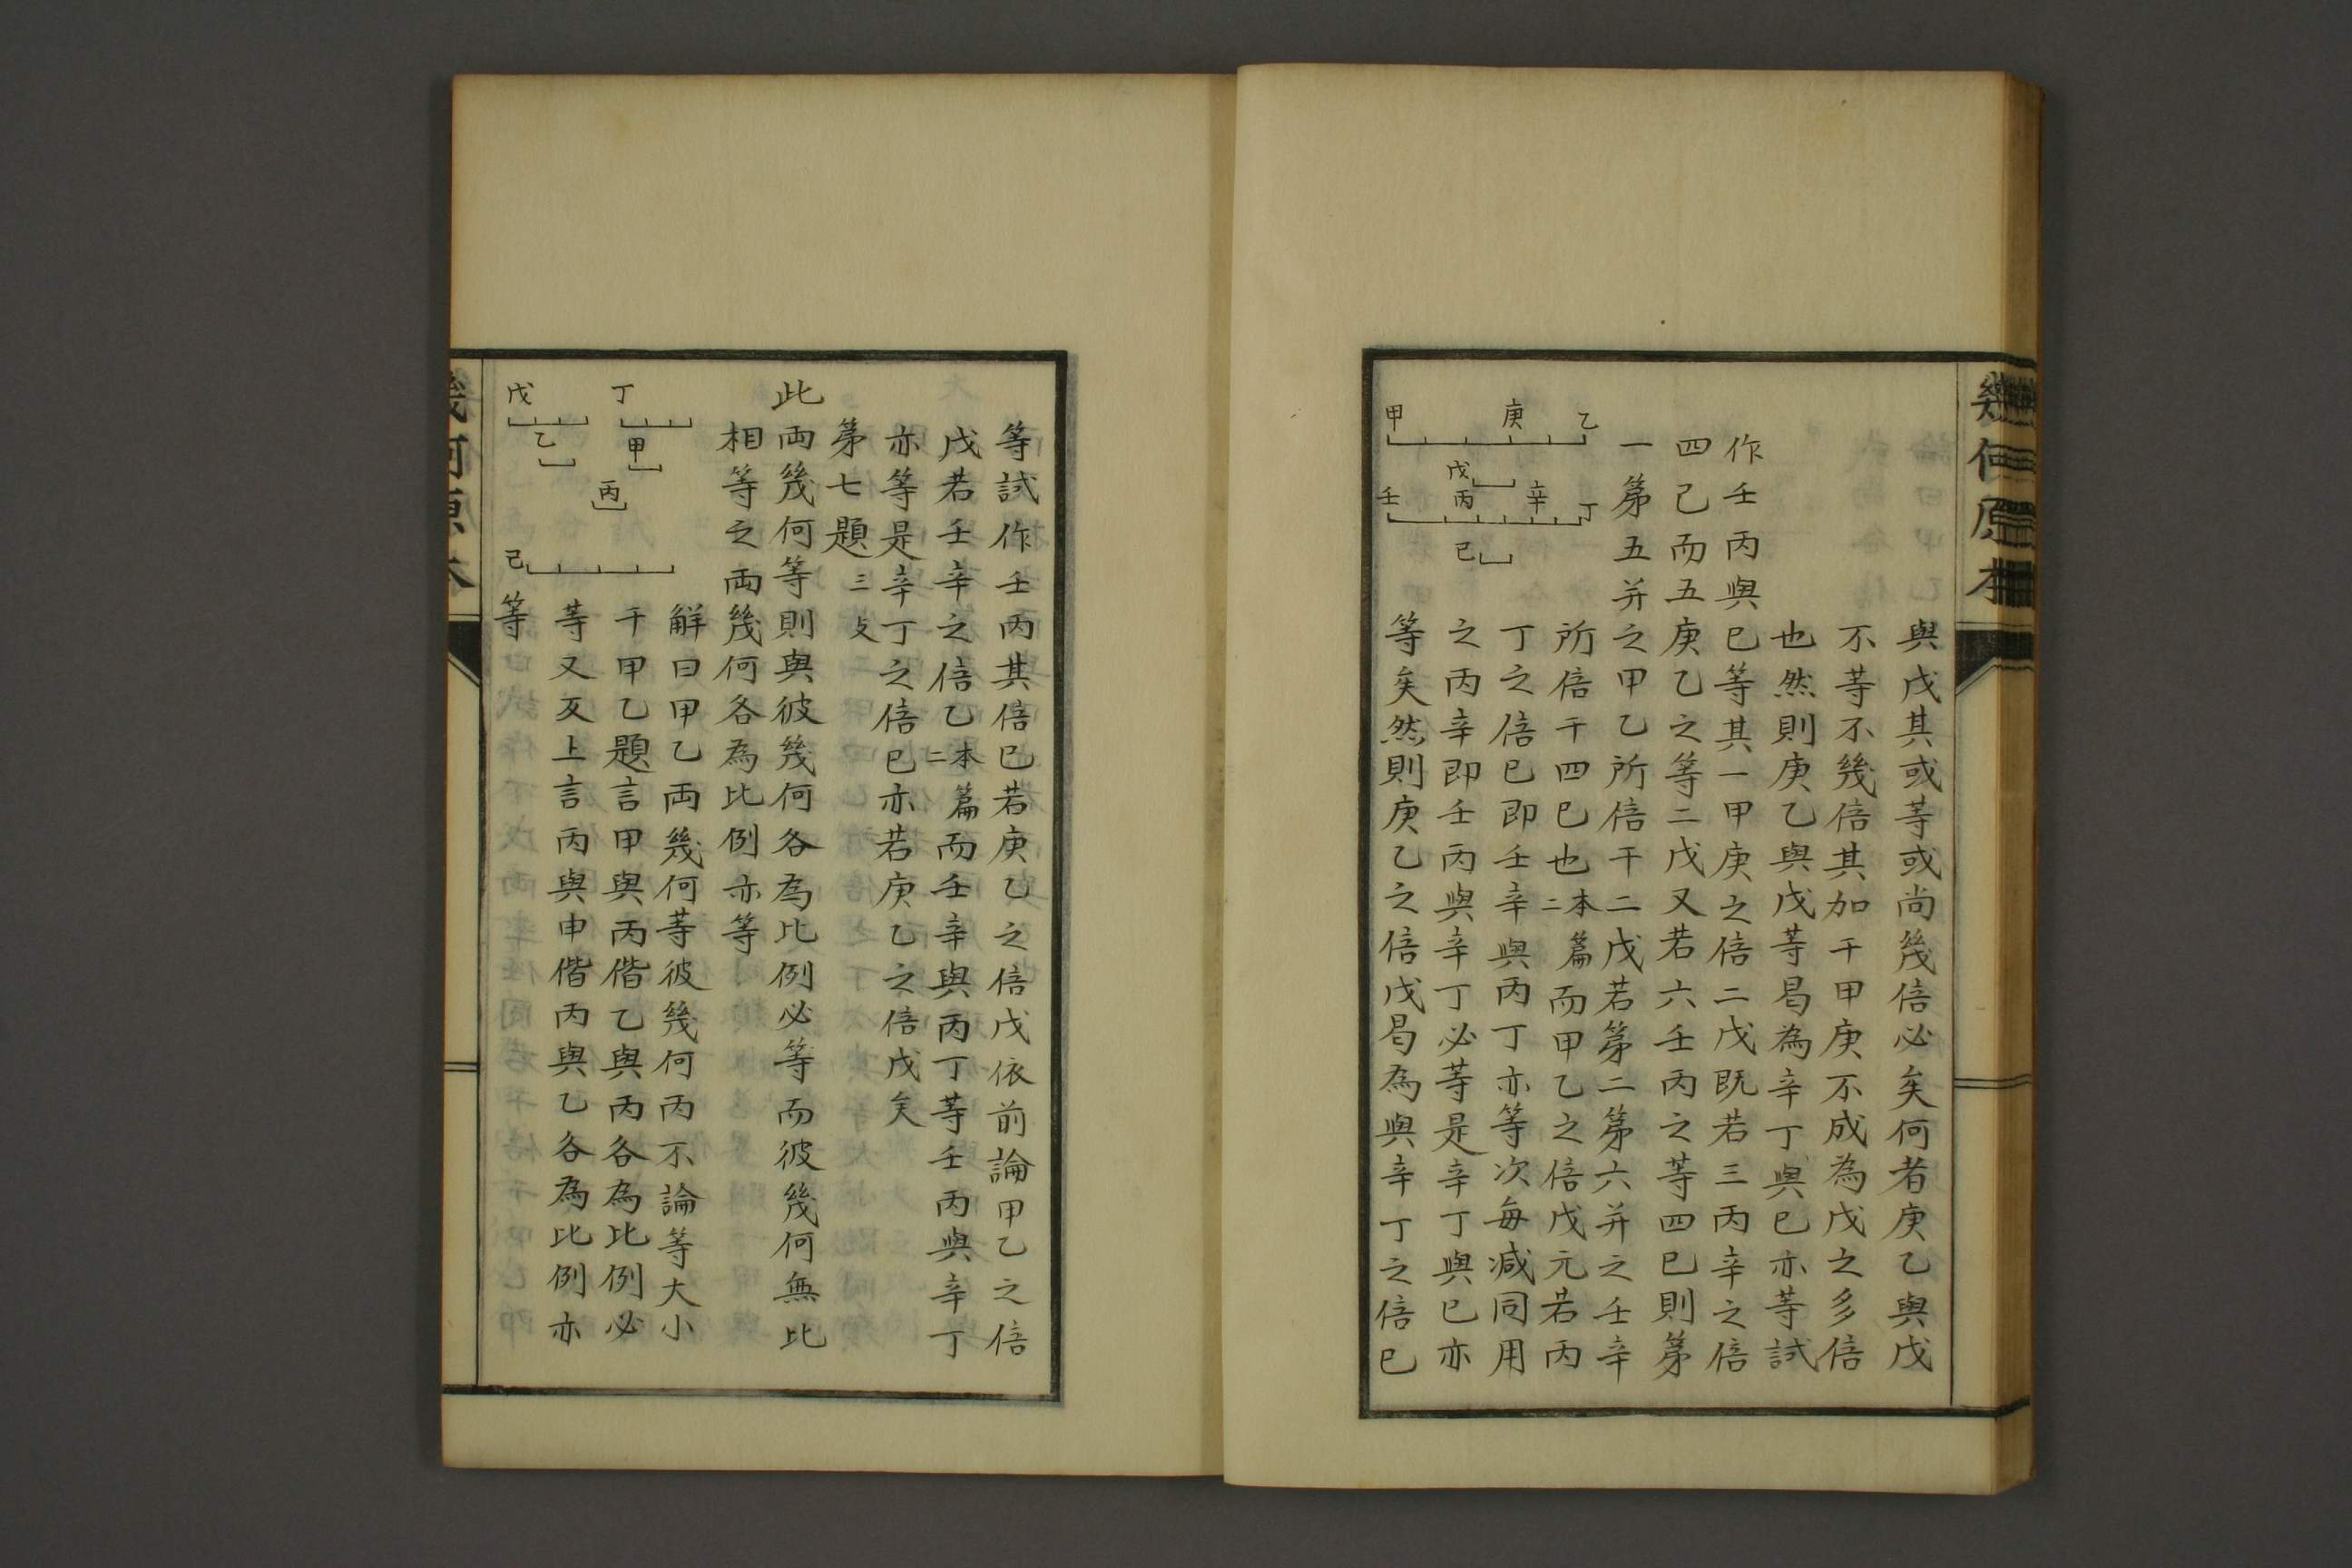 幾何原本
與戊其或等或尚幾倍必矣何者庚乙與戊
不等不幾倍其加于甲庚不成為戊之多倍
也然則庚乙與戊等曷為辛丁與巳亦等試
作壬丙與巳等其一甲庚之倍二戊既若三丙辛之倍
四己而五庚乙之等二戊又若六壬丙之等四巳則第
一第五并之甲乙所倍于二戊若第二第六并之壬辛
所倍于四巳也本篇二而甲乙之倍戊元若丙
丁之倍巳即壬辛與丙丁亦等次每減同用
之丙辛即壬丙與辛丁必等是辛丁與巳亦
等矣然則庚乙之倍戊曷為與辛丁之倍巳
甲 庚 乙
戊
壬 丙 辛 丁
己
等試作壬丙其倍巳若庚乙之倍戊依前論甲乙之倍
戊若壬辛之倍乙本篇二而壬辛與丙丁等壬丙與辛丁
亦等是辛丁之倍巳亦若庚乙之倍戊矣
第七題三支
此兩幾何等則與彼幾何各為比例必等而彼幾何無比
相等之兩幾何各為比例亦等
解曰甲乙兩幾何等彼幾何丙不論等大小
于甲乙題言甲與丙偕乙與丙各為比例必
等又反上言丙與申偕丙與乙各為比例亦
等
丁 戊
甲 乙
丙
己
幾何原本